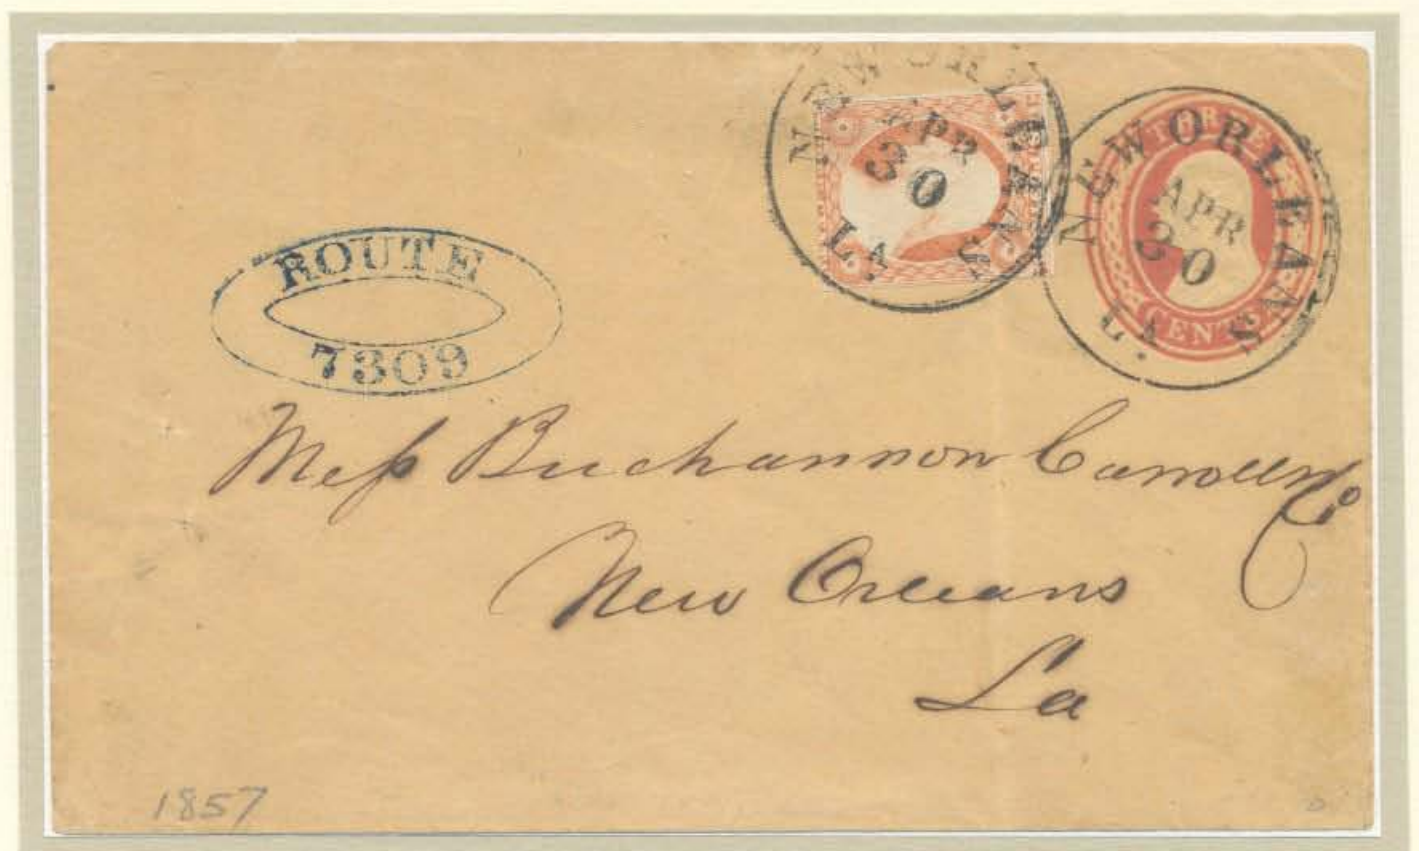 NEW ORLEANS
APR
30
LA.
NEW ORLEANS
APR
30
LA.
THREE
CENTS
ROUTE
7309
Mess Buchannon Carroll & Co
New Orleans
La
1857